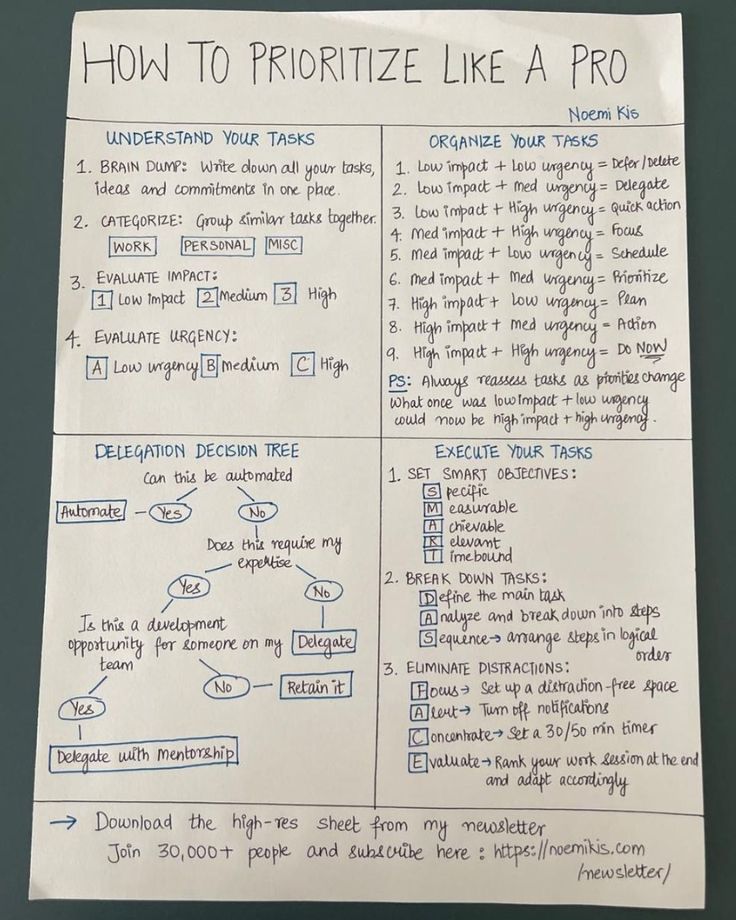 HOW TO PRIORITIZE LIKE A PRO
Noemi Kis
UNDERSTAND YOUR TASKS
1. BRAIN DUMP: Write down all your tasks,
ideas and commitments in one place.
2. CATEGORIZE: Group similar tasks together.
WORK PERSONAL MISC
3. EVALUATE IMPACT:
1 Low impact 2 Medium 3 High
4. EVALUATE URGENCY:
A Low urgency B Medium C High
ORGANIZE YOUR TASKS
1. Low impact + Low urgency = Defer/Delete
2. Low impact + Med urgency = Delegate
3. Low impact + High urgency = Quick action
4. Med impact + High urgency = Focus
5. Med impact + Low urgency = Schedule
6. Med impact + Med urgency = Prioritize
7. High impact + Low urgency = Plan
8. High impact + Med urgency = Action
9. High impact + High urgency = Do NOW
PS: Always reassess tasks as priorities change
What once was low impact + low urgency
could now be high impact + high urgency.
DELEGATION DECISION TREE
Can this be automated
Automate Yes No
Does this require my
expertise
Yes No
Is this a development
opportunity for someone on my
team
Delegate
No Retain it
Yes
Delegate with mentorship
EXECUTE YOUR TASKS
1. SET SMART OBJECTIVES:
Specific
Measurable
Achievable
Relevant
Timebound
2. BREAK DOWN TASKS:
Define the main task
Analyze and break down into steps
Sequence → arrange steps in logical
order
3. ELIMINATE DISTRACTIONS:
Focus → Set up a distraction-free space
Alert → Turn off notifications
Concentrate → Set a 30/50 min timer
Evaluate → Rank your work session at the end
and adapt accordingly
→ Download the high-res sheet from my newsletter
Join 30,000+ people and subscribe here: https://noemikis.com
/newsletter/